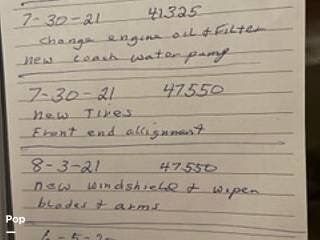 7-30-21 41325
Change engine oil & Filter
new coach water pump
7-30-21 47550
new Tires
Front end allignment
8-3-21 47550
new windshield & wipen
blades & arms
Pop